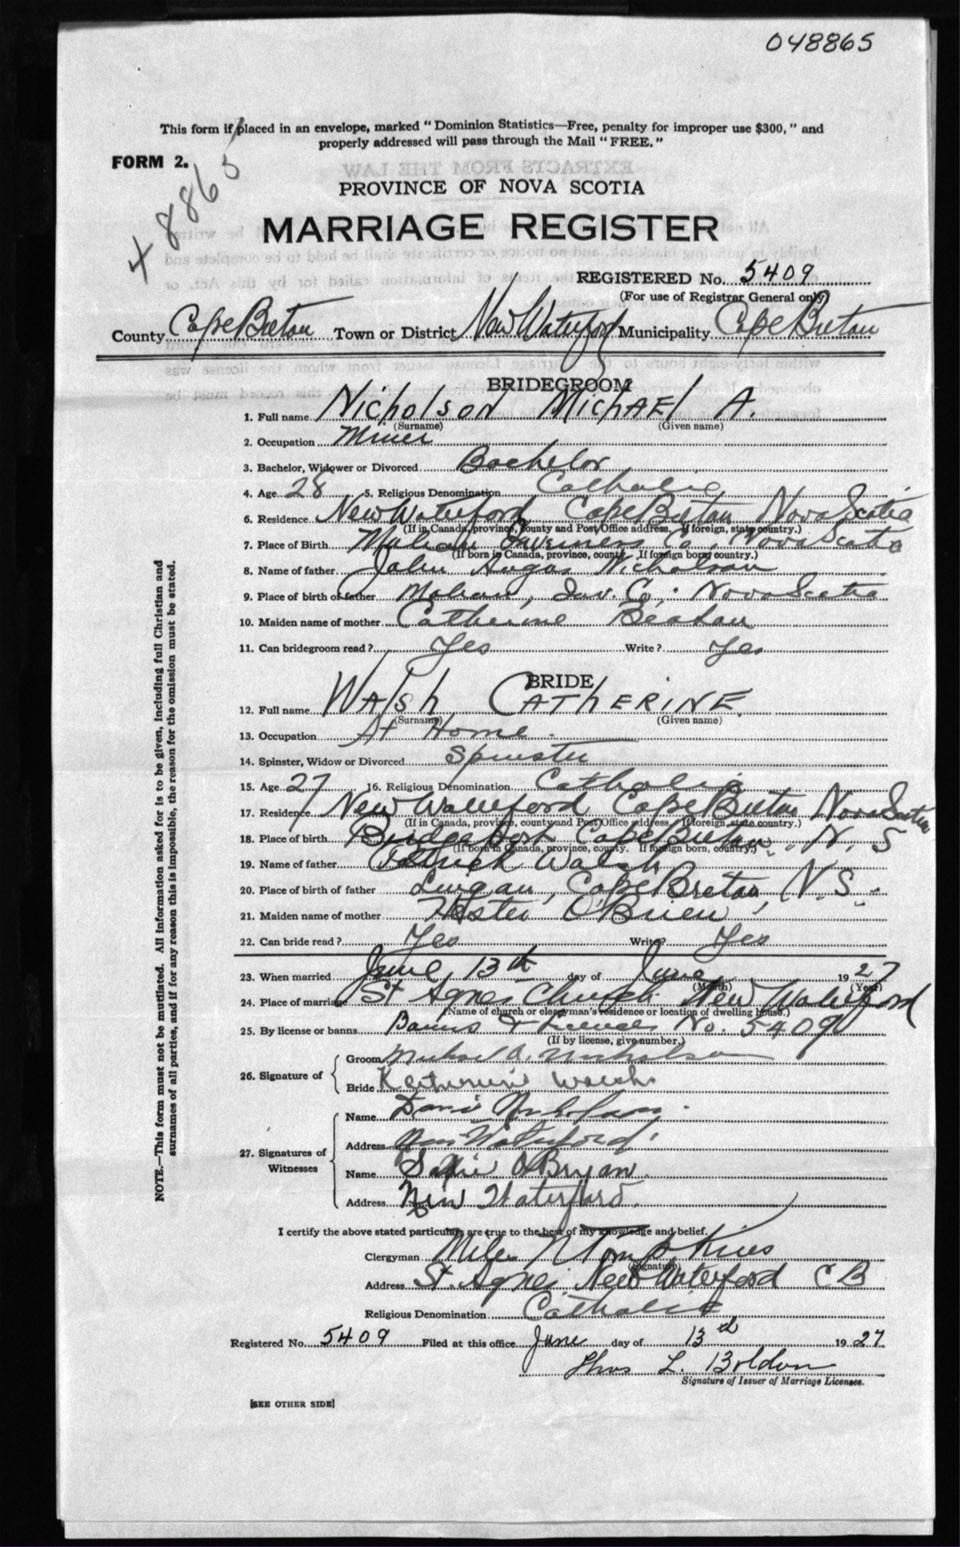 048865
This form if placed in an envelope, marked "Dominion Statistics—Free, penalty for improper use $300," and
properly addressed will pass through the Mail "FREE."
FORM 2.
48865
PROVINCE OF NOVA SCOTIA
MARRIAGE REGISTER
REGISTERED No. 5409
(For use of Registrar General only)
County Cape Breton Town or District New Waterford Municipality Cape Breton
BRIDEGROOM
1. Full name Nicholson Michael A.
(Surname) (Given name)
2. Occupation Miner
3. Bachelor, Widower or Divorced Bachelor
4. Age 28 5. Religious Denomination Catholic
6. Residence New Waterford Cape Breton Nova Scotia
(If in Canada, province, county and Post Office address, if foreign, state country.)
7. Place of Birth Inverness Co, Nova Scotia
(If born in Canada, province, county. If foreign born, country.)
8. Name of father John Angus Nicholson
9. Place of birth of father Inv. Co. Nova Scotia
10. Maiden name of mother Catherine Beaton
11. Can bridegroom read? Yes Write? Yes
BRIDE
12. Full name Walsh Catherine
(Surname) (Given name)
13. Occupation At Home.
14. Spinster, Widow or Divorced Spinster
15. Age 27 16. Religious Denomination Catholic
17. Residence New Waterford Cape Breton Nova Scotia
(If in Canada, province, county and Post Office address. If foreign, state country.)
18. Place of birth Bridgeport Cape Breton. N. S
(If born in Canada, province, county. If foreign born, country.)
19. Name of father Patrick Walsh
20. Place of birth of father Lingan, Cape Breton, N. S.
21. Maiden name of mother Hester O'Brien
22. Can bride read? Yes Write? Yes
23. When married June, 13th day of June 1927
(Month) (Year)
24. Place of marriage St Agnes Church New Waterford
(Name of church or clergyman's residence or location of dwelling house.)
25. By license or banns Banns & License No. 5409
(If by license, give number.)
26. Signature of
Groom Michael A. Nicholson
Bride Katherine Walsh
27. Signatures of Witnesses
Name Nicholson
Address New Waterford.
Name Sadie O'Bryan
Address New Waterford.
I certify the above stated particulars are true to the best of my knowledge and belief.
Clergyman Miles N Tompkins
(Signature)
Address St. Agnes New Waterford C B
Religious Denomination Catholic
Registered No. 5409 Filed at this office June day of 13th 1927
Thos L. Boldon
Signature of Issuer of Marriage Licenses.
[SEE OTHER SIDE]
NOTE.—This form must not be mutilated. All information asked for is to be given, including full Christian and
surnames of all parties, and if for any reason this is impossible, the reason for the omission must be stated.